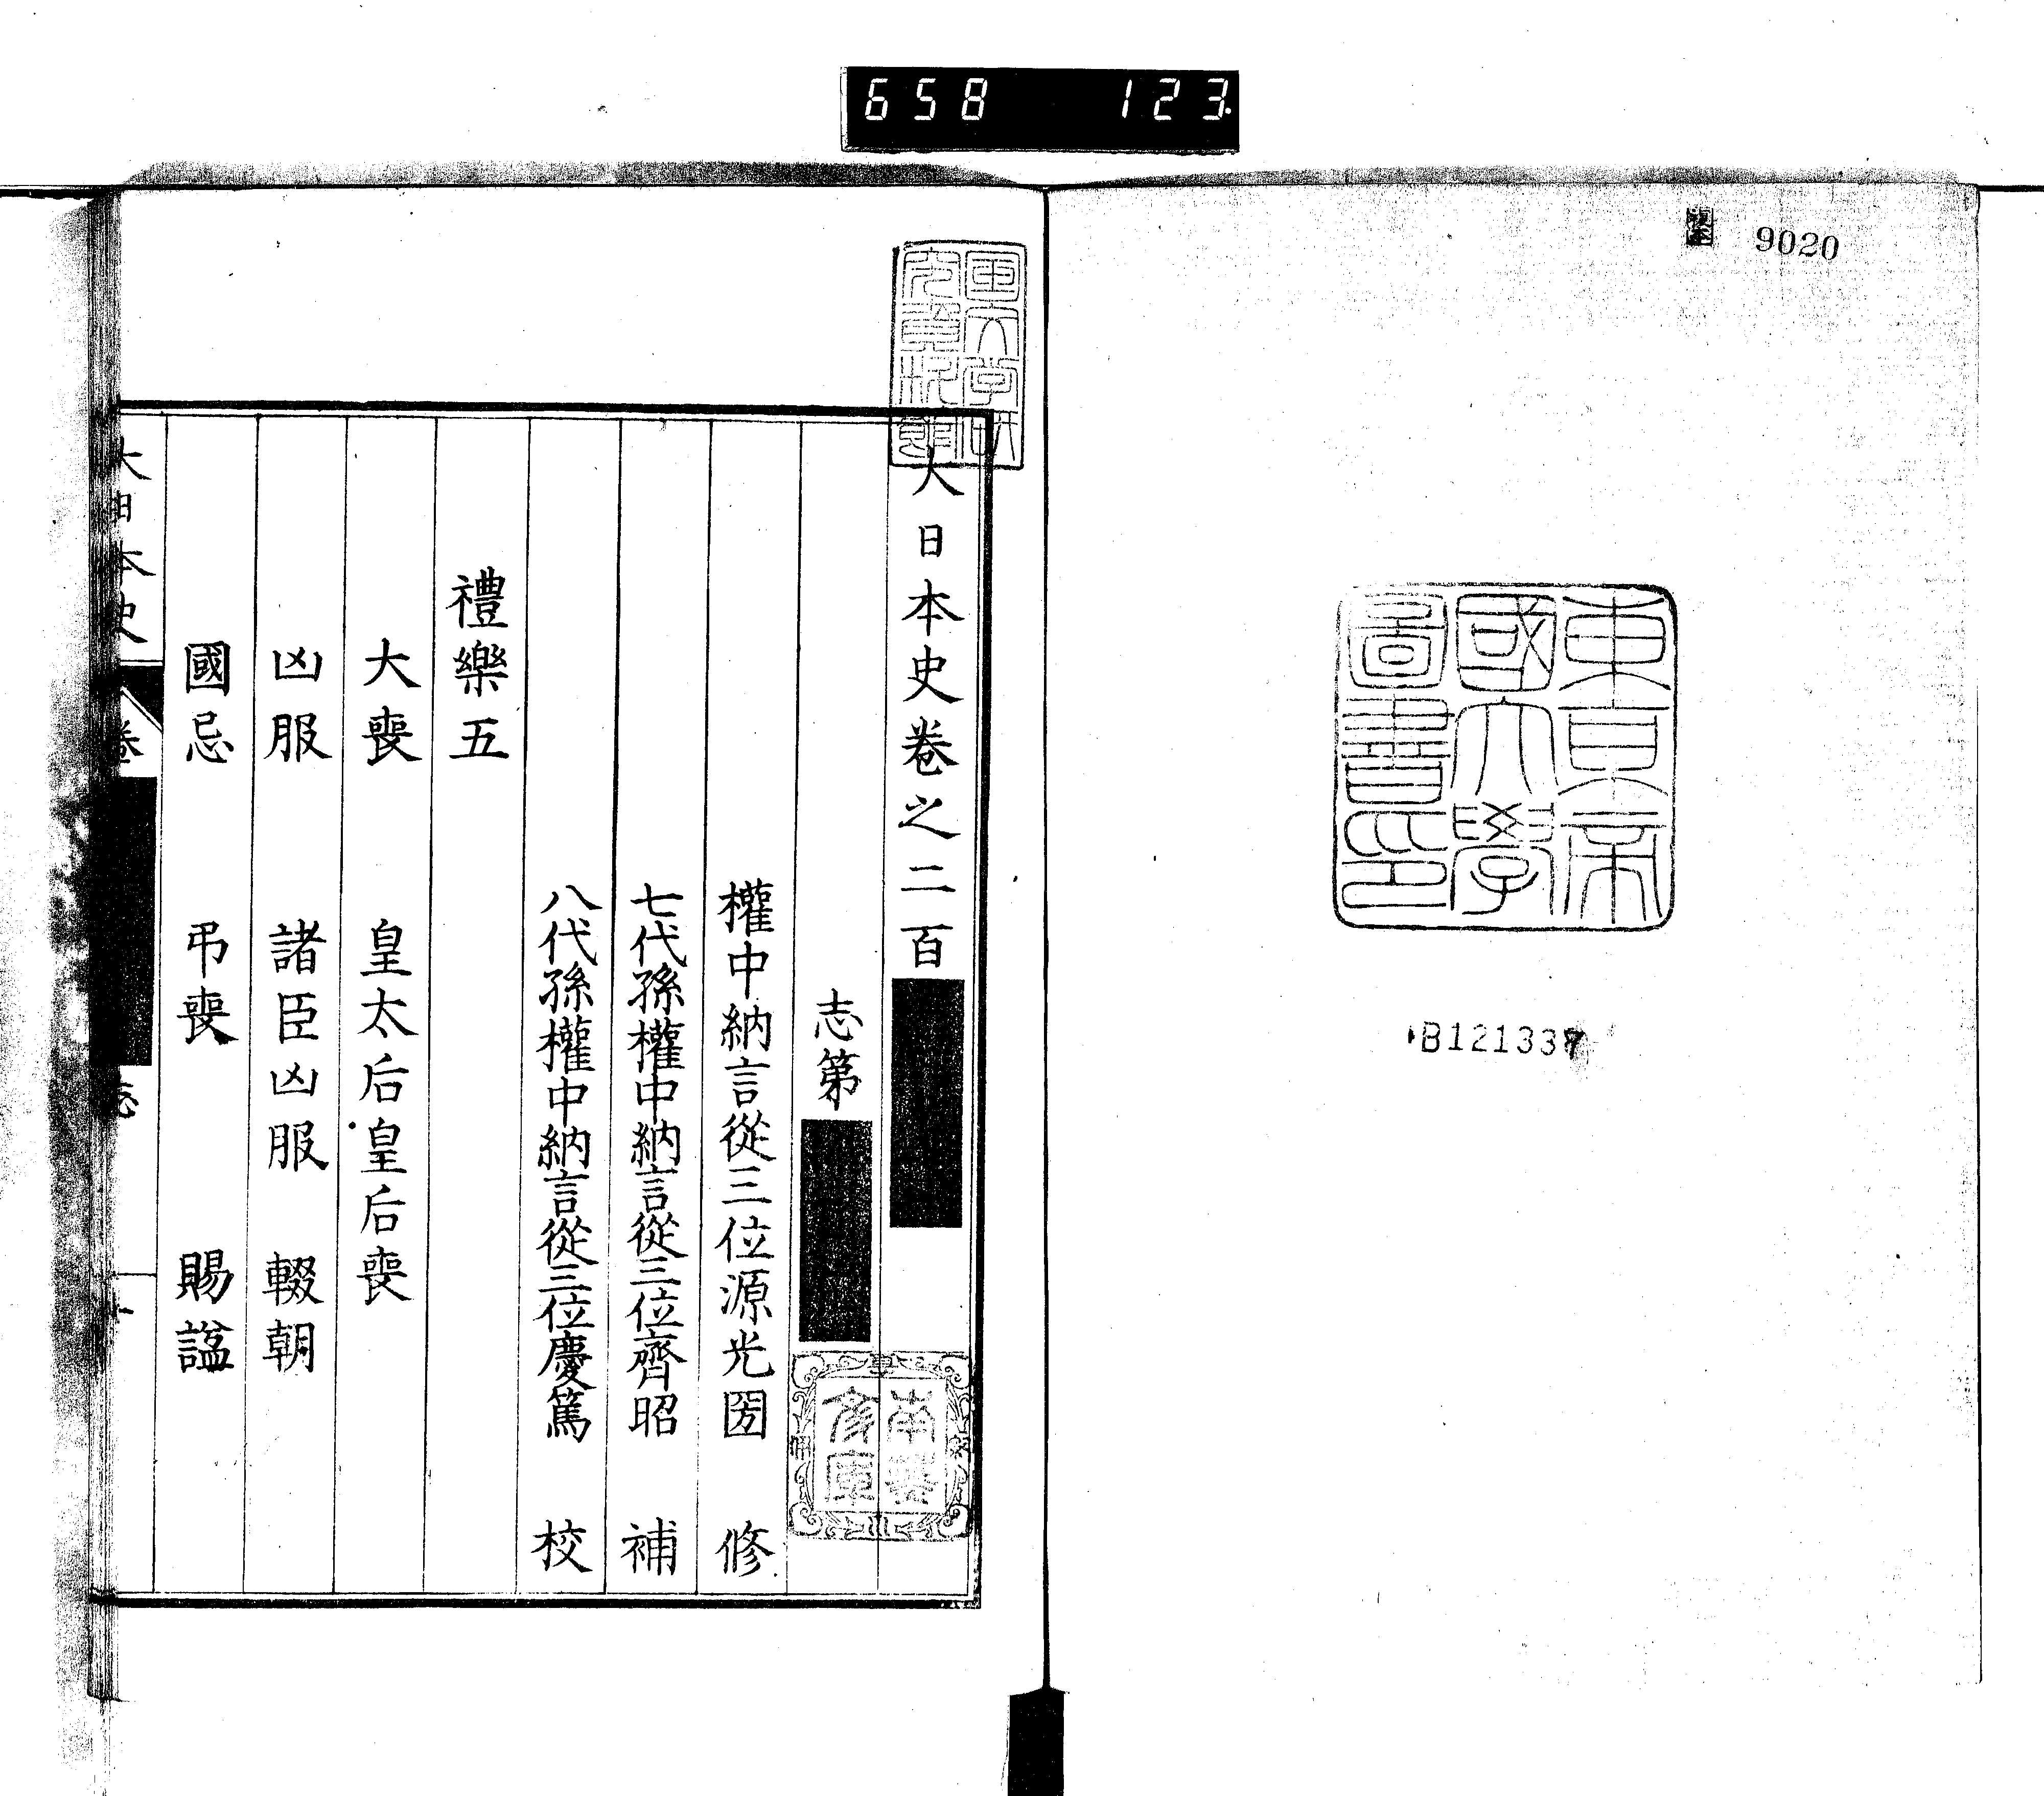 658 123
複本 9020
東京帝
國大學
圖書印
B121337
大日本史卷之二百
志第
權中納言從三位源光圀 修
七代孫權中納言從三位齊昭 補
八代孫權中納言從三位慶篤 校
禮樂五
大喪 皇太后皇后喪
凶服 諸臣凶服 輟朝
國忌 弔喪 賜諡
大日本史 卷 志
南葵
文庫